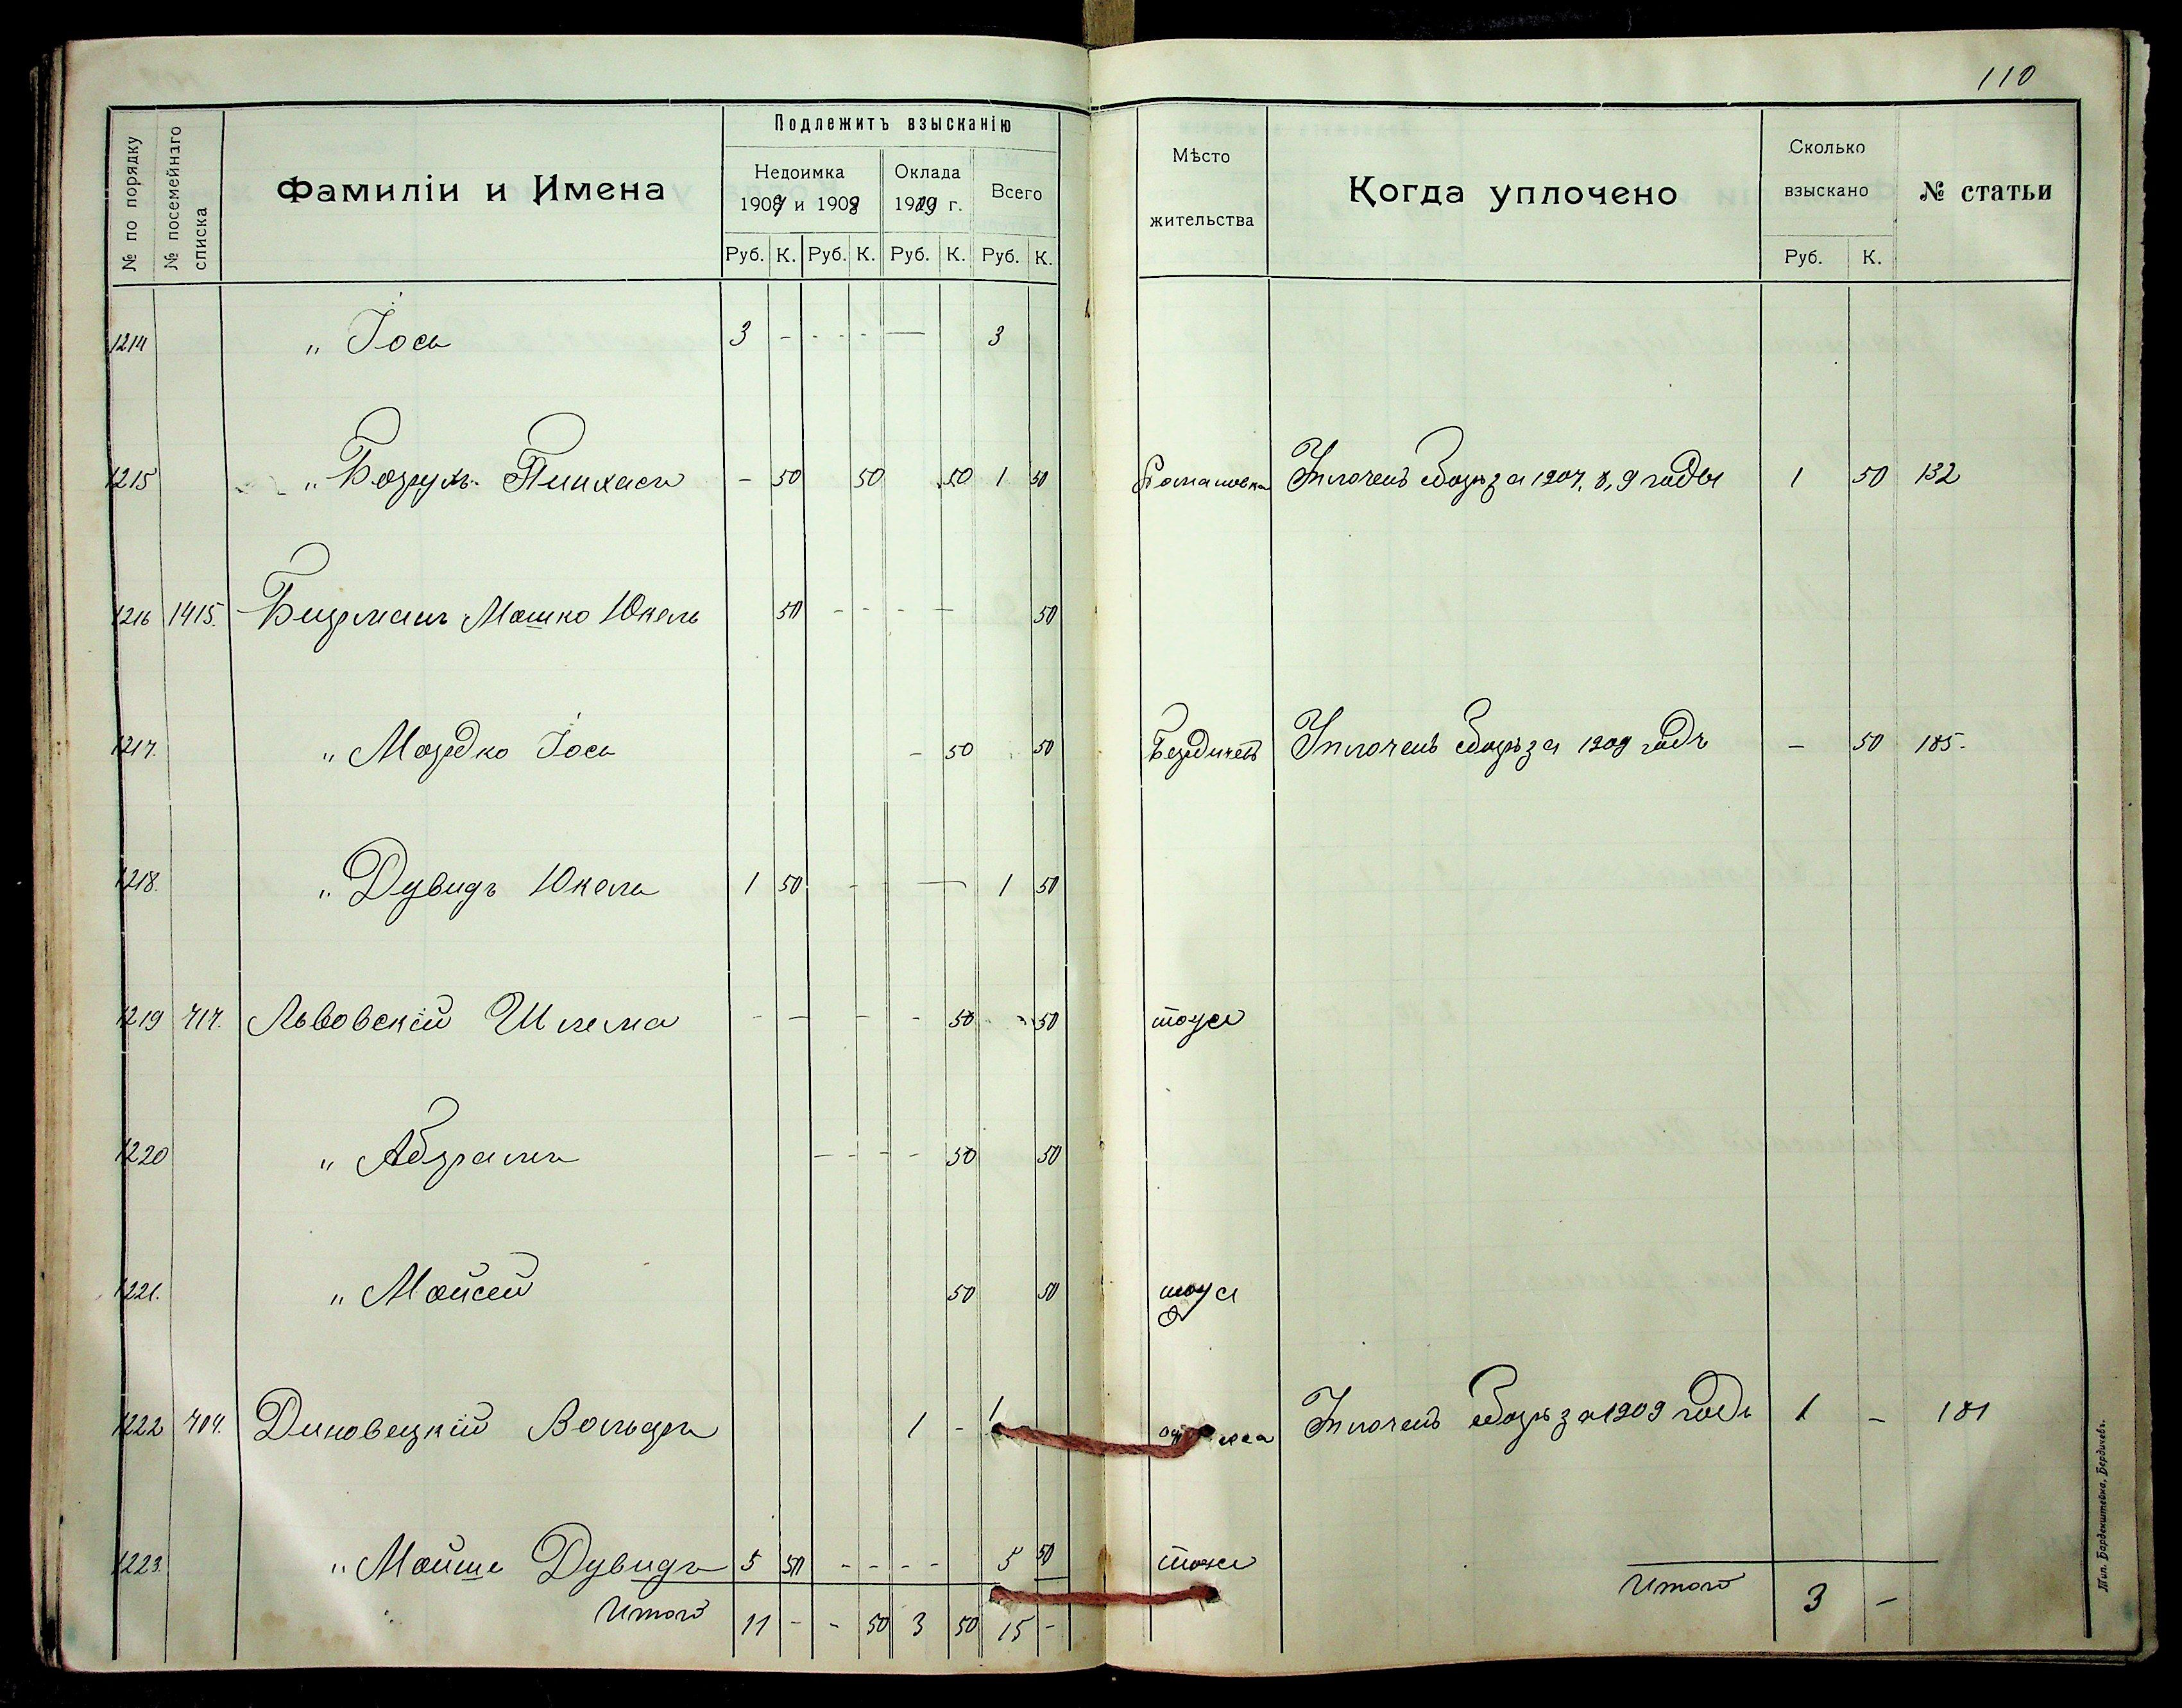 110
№ по порядку
№ посемейнаго списка
Фамиліи и Имена
Подлежитъ взысканію
Недоимка
1907 и 1908
Оклада
1909 г.
Всего
Руб. К. Руб. К. Руб. К. Руб. К.
Мѣсто
жительства
Когда уплочено
Сколько
взыскано
Руб. К.
№ статьи
1214 " Іось 3 - - - - — 3
1215 " Борухъ Пинхасъ - 50 50 50 1 50 Романовка Уплоченъ сборъ за 1907, 8, 9 годы 1 50 132
1216 1415. Бирманъ Мошко Юкель 50 - - - - 50
1217. " Мордко Іось - 50 50 Бердичевъ Уплоченъ сборъ за 1909 годъ - 50 185.
1218. " Дувидъ Юкель 1 50 - - — 1 50
1219 717. Львовскій Шлема - - - - 50 50 тоже
1220 " Абрамъ - - - - 50 50
1221. " Мойсей 50 50 тоже
1222 704. Диновецкій Вольфъ 1 - 1 Уплоченъ сборъ за 1909 годъ 1 - 181
1223. " Мойше Дувидъ 5 50 - - - - 5 50 тоже
Итого 11 - - 50 3 50 15 - Итого 3 -
Тип. Барденштейна, Бердичевъ.